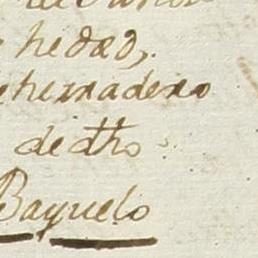 hedad,
herradero
de dho
Bayuelo